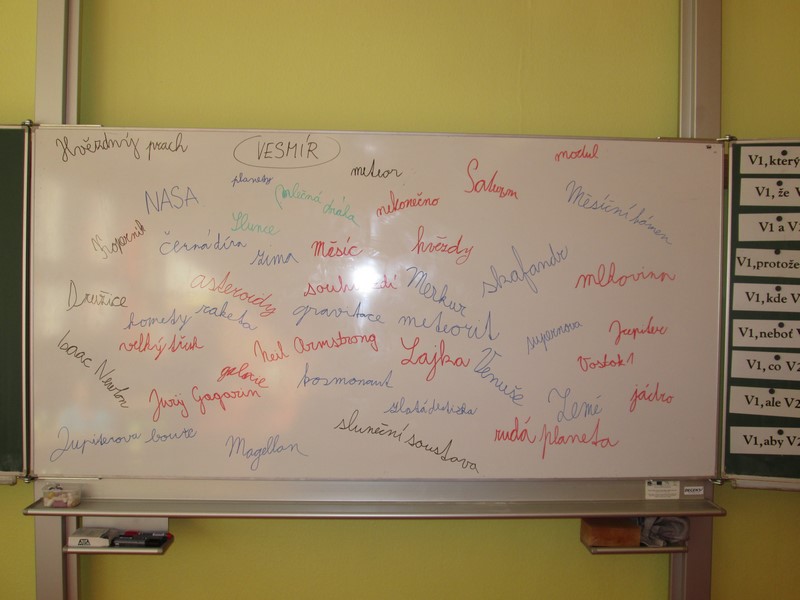 Hvězdný prach
VESMÍR
meteor
modul
planety
Saturn
NASA
nekonečno
Měsíční kámen
Slunce
Koperník
černá díra
zima
Měsíc
hvězdy
skafandr
asteroidy
souhvězdí
Merkur
mlhovina
Družice
komety
raketa
gravitace
meteorit
supernova
Jupiter
velký třesk
Neil Armstrong
Lajka
Vostok 1
Isaac Newton
galaxie
kosmonaut
Venuše
Jurij Gagarin
zlatá destička
Země
jádro
Jupiterova bouře
Magellan
sluneční soustava
rudá planeta
V1, který
V1, že V
V1 a V
V1, protože
V1, kde V
V1, neboť V
V1, co V2
V1, ale V2
V1, aby V2